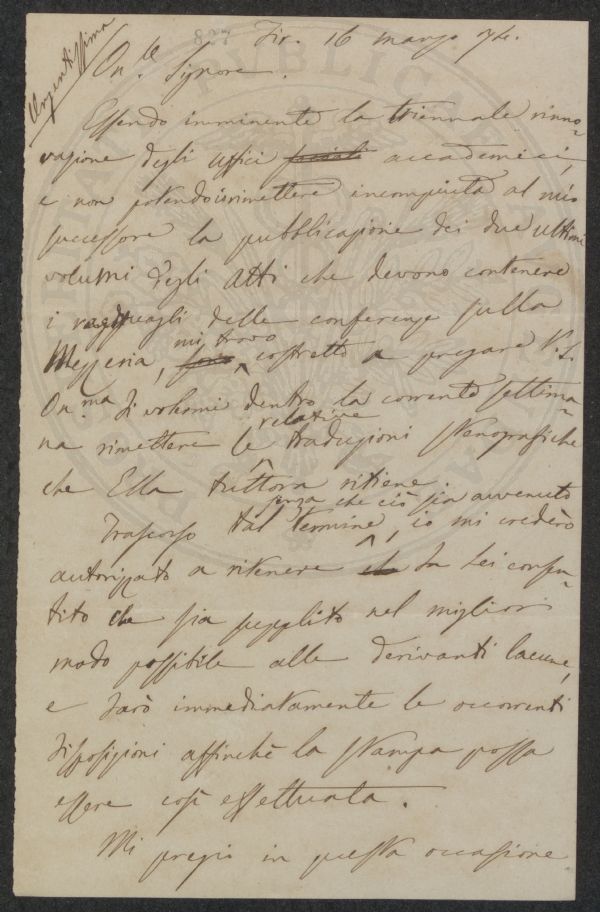 827
Fir. 16 marzo 74.
Urgentissima
On.le Signore.
Essendo imminente la triennale rinno-
vazione degli uffici sociali accademici,
e non potendo rimettere incompiuta al mio
successore la pubblicazione dei due ultimi
volumi degli Atti che devono contenere
i ragguagli delle conferenze sulla
mi trovo
Mezzeria, sono costretto a pregare V.S.
On.ma di volermi dentro la corrente settima-
relative
na rimettere le traduzioni stenografiche
che Ella tuttora ritiene.
senza che ciò sia avvenuto
Trascorso tal termine, io mi crederò
autorizzato a ritenere che da Lei consen-
tito che sia supplito nel miglior
modo possibile alle derivanti lacune,
e darò immediatamente le occorrenti
disposizioni affinchè la stampa possa
essere così effettuata.
Mi pregio in questa occasione